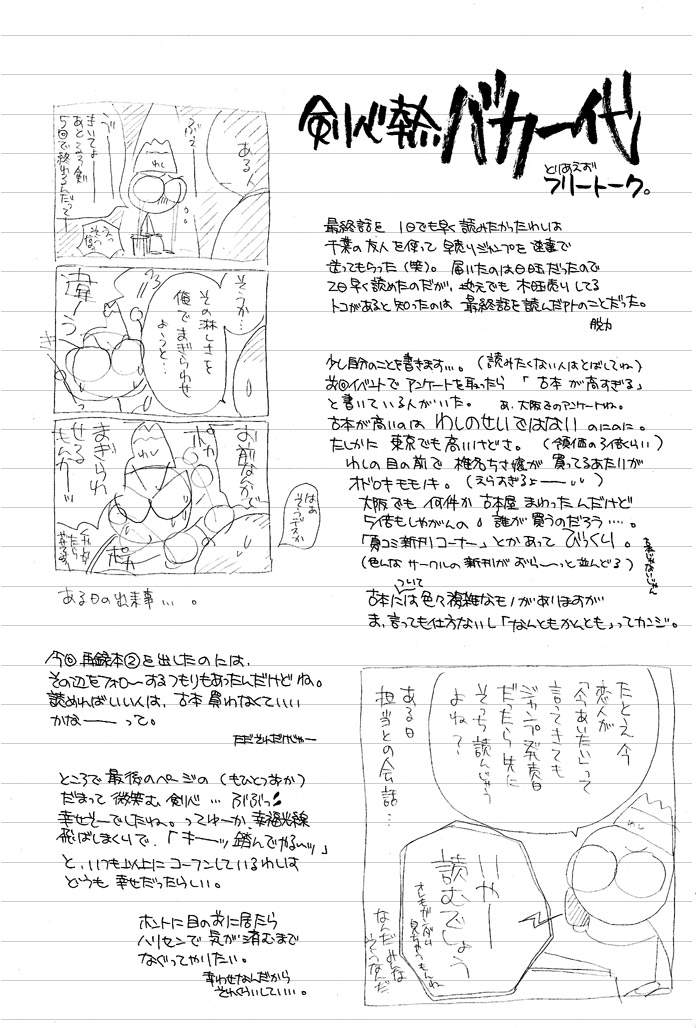 剣心熱バカ一代
とりあえず
フリートーク。
最終話を 1日でも早く読みたかったわしは
千葉の友人を使って 早売りジャンプを速達で
送ってもらった(笑)。届いたのは日曜だったので
2日早く読めたのだが、地元でも 木曜売りしてる
トコがあると知ったのは 最終話を読んだアトのことだった。
脱力
少し自分のことを書きます…。(読みたくない人はとばしてね)
前回イベントで アンケートを取ったら 「古本が高すぎる」
と書いている人がいた。 あ、大阪でのアンケートね。
古本が高いのは わしのせいではない のにのに。
たしかに 東京でも高いけどさ。 (領価の3倍くらい)
わしの目の前で 椎名ちさ嬢が 買ってるあたりが
オドロキモモノキ。
大阪でも 何件か 古本屋 まわったんだけど
5倍もしやがんの。誰が買うのだろう…。
「夏コミ新刊コーナー」とかあって びっくり。
(色んな サークルの新刊が ずら〜っと並んどる)
古本には色々複雑なモノがありますが
ついて
ま、言っても仕方ないし「なんともかんとも」ってカンジ。
ある人
ぶう
きいてよー
あと
るろ剣
5回で終わるんだってー
わし
そうか…
その淋しさを
俺でまぎらわせ
ようと…
違ーう
お前なんかで
まぎらわ
せる
もんかーッ
ポカ
ポカ
はあ
そうデスか
ある日の出来事…。
今回 再録本②を出したのには、
その辺をフォローするつもりもあったんだけどね。
読めればいい人は、古本買わなくていい
かなーー って。
ただそんだけじゃー
ところで最後のページの (もひとつあか)
だまって 微笑む 剣心 … ぶぶっ
幸せそーでしたね。ってゆーか、幸福光線
飛ばしまくりで、「キーッッ 踏んでやるーッ」
と、いつも以上に コーフンしているわしは
どうも 幸せだったらしい。
ホントに目の前に居たら
ハリセンで 気が済むまで
なぐってやりたい。
幸わせなんだから
それくらいしていい…。
ある日
担当との会話…
たとえ今
恋人が
「今あいたい」って
言ってきても
ジャンプ発売日
だったら先に
そっち読んじゃう
よね?
いやー
読むでしょう
なんだみんな
そうなんだ